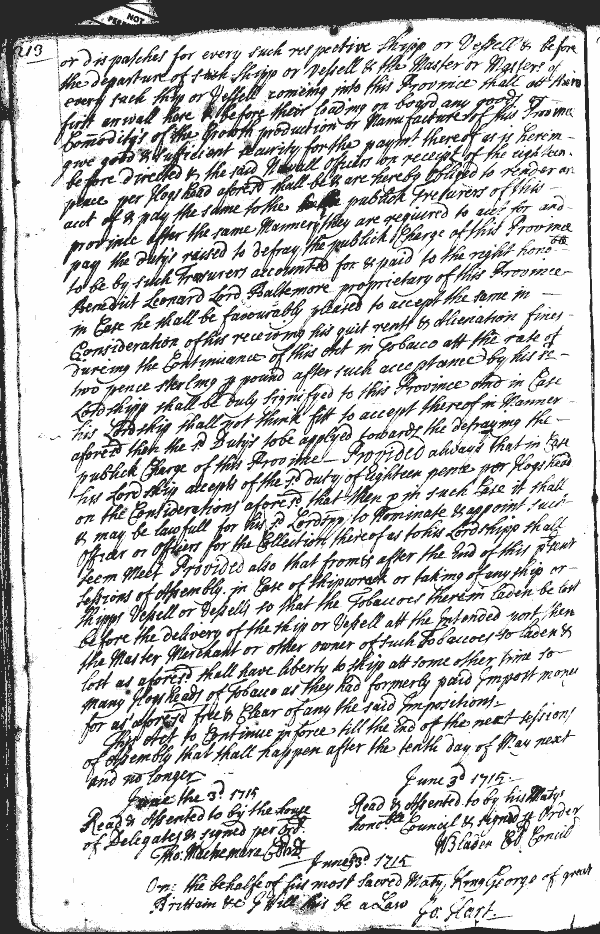 213
NOT
or dispatches for every such respective Shipp or Vessell & before
the departure of such Shipp or Vessell & the Master or Masters of
every such Ship or Vessell comeing into this Province shall att their
first arrivall here & before their loading on board any goods or
Comodity's of the Growth production or Manufacture of this Province
give good & sufficient security for the paymt thereof as is herein
before directed & the said Navall officers on receipt of the eighteen
pence per Hogshead aforesd shall be & are hereby obliged to render an
acct of & pay the same to the publick Treasurers of this
province after the same Manner they are required to acct for and
pay the duty's raised to defray the publick Charge of this Province
to be by such Treasurers accounted for & paid to the right honoble
Benedict Leonard Lord Baltemore proprietary of this Province
in Case he shall be favourably pleased to accept the same in
Consideration of his receiving his quit rents & Alienation fines
dureing the Continuance of this Act in Tobacco att the rate of
two pence sterling p pound after such acceptance by his sd
Lordshipp shall be duly signifyed to this Province And in Case
his Lordship shall not think fitt to accept thereof in Manner
aforesd that the sd Duty's to be applyed towards the defraying the
publick Charge of this Province Provided always that in Case
his Lordship accepts of the sd duty of Eighteen pence per Hogshead
on the Considerations aforesd that then in such Case it shall
& may be lawfull for his sd Lordspp to Nominate & appoint such
Officer or Officers for the Collection thereof as to his Lordshipp shall
seem Meet Provided also that from & after the End of this psent
sessions of Assembly in Case of shipwrack or taking of any ship or
shipps Vessell or Vessells so that the Tobaccoes therein laden be lost
before the delivery of the ship or Vessell att the Intended port then
the Master Merchant or other owner of such Tobaccoes so laden &
lost as aforesd shall have liberty to ship att some other time so
many Hogsheads of Tobacco as they had formerly paid Impost money
for as aforesd free & Clear of any the said Impositions
This Act to Continue in force till the End of the next sessions
of Assembly that shall happen after the tenth day of May next
and no longer
June the 3d 1715
Read & Assented to by the house
of Delegates & signed per Ordr
Tho: Macnemara
June 3d 1715
Read & Assented to by his Matys
honoble Council & signed p Order
W Bladen Concil
June 3d 1715
On the behalfe of his most Sacred Maty King George of great
Brittain &c I Will this be a Law
Jo: Hart